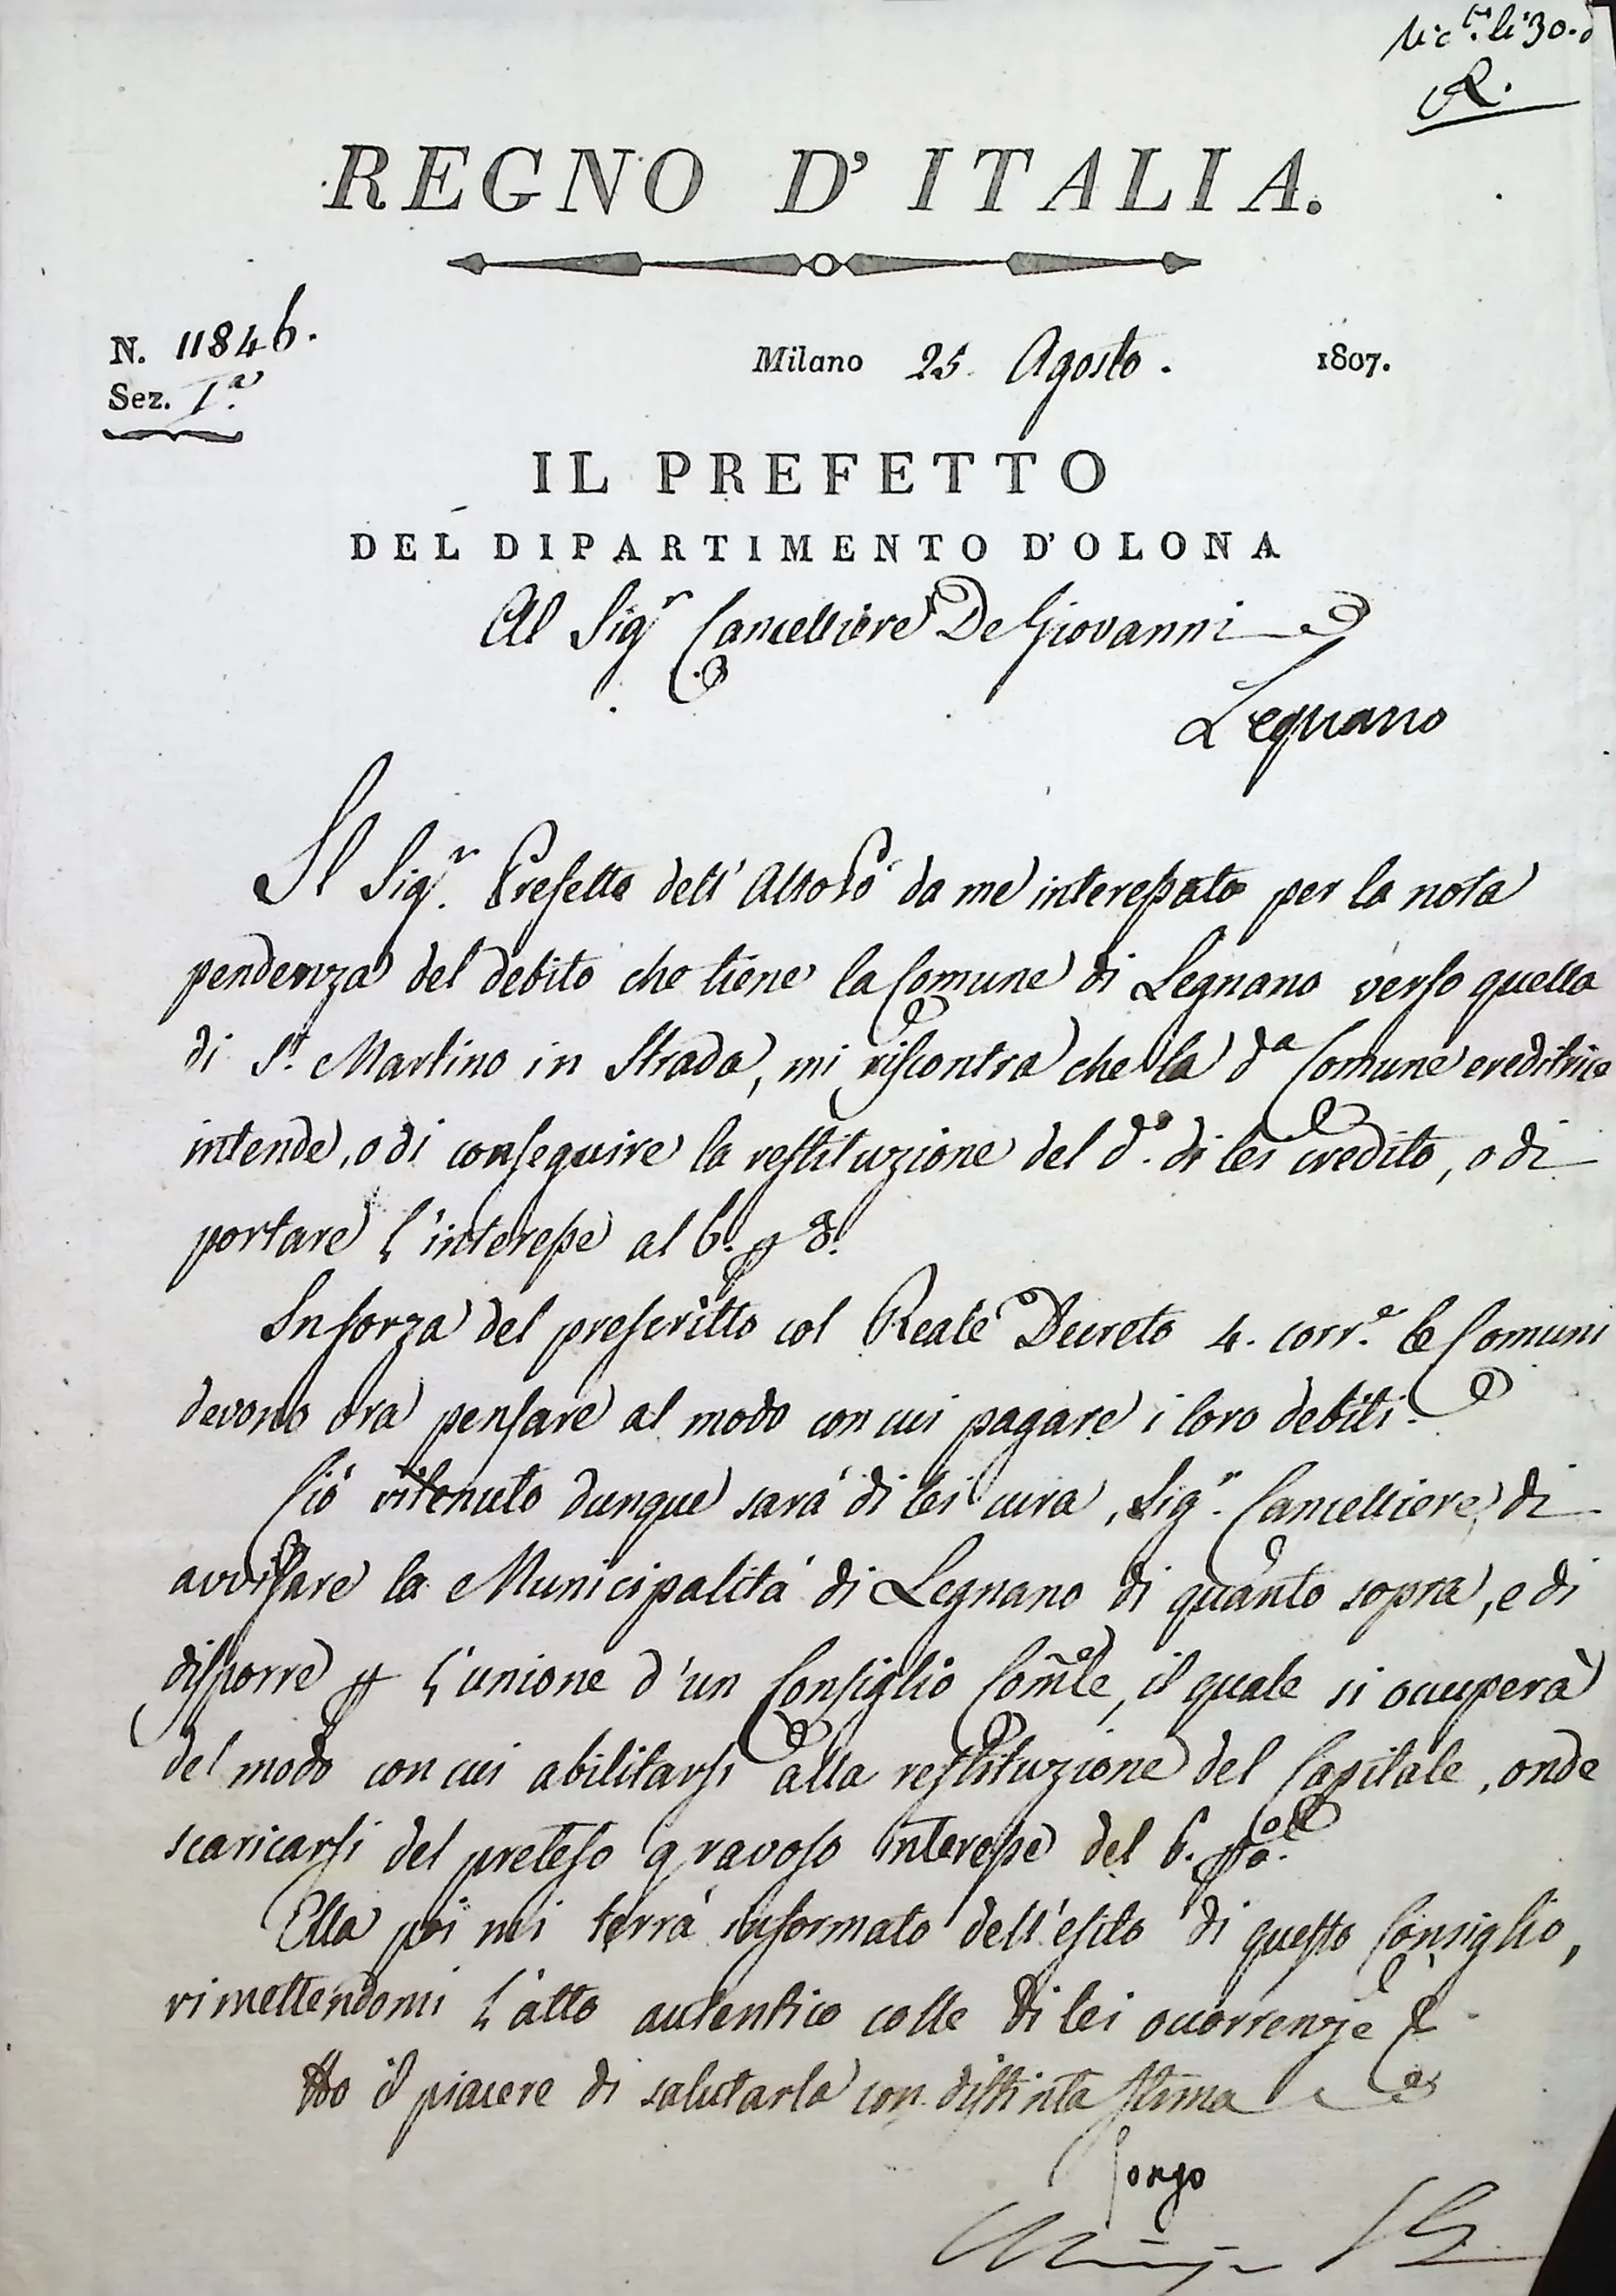 li 30.
R.
REGNO D'ITALIA.
N. 11846.
Milano 25. Agosto. 1807.
Sez. I.ª
IL PREFETTO
DEL DIPARTIMENTO D'OLONA
Al Sig.r Cancelliere De Giovanni
Legnano
Il Sig.r Prefetto dell'Alto Pò da me interessato per la nota
pendenza del debito che tiene la Comune di Legnano verso quella
di S.t Martino in Strada, mi riscontra che la d.a Comune creditrice
intende, o di conseguire la restituzione del d.o di lei credito, o di
portare l'interesse al 6. p
In forza del prescritto col Reale Decreto 4. corr.e le Comuni
devono ora pensare al modo con cui pagare i loro debiti.
Ciò ritenuto dunque sarà di lei cura, Sig.r Cancelliere, di
avvisare la Municipalità di Legnano di quanto sopra, e di
disporre p l'unione d'un Consiglio Com̃le, il quale si occuperà
del modo con cui abilitarsi alla restituzione del Capitale, onde
scaricarsi del preteso gravoso interesse del 6. p
Ella poi mi terrà informato dell'esito di questo Consiglio,
rimettendomi l'atto autentico colle di lei occorrenze
Ho il piacere di salutarla con distinta stima